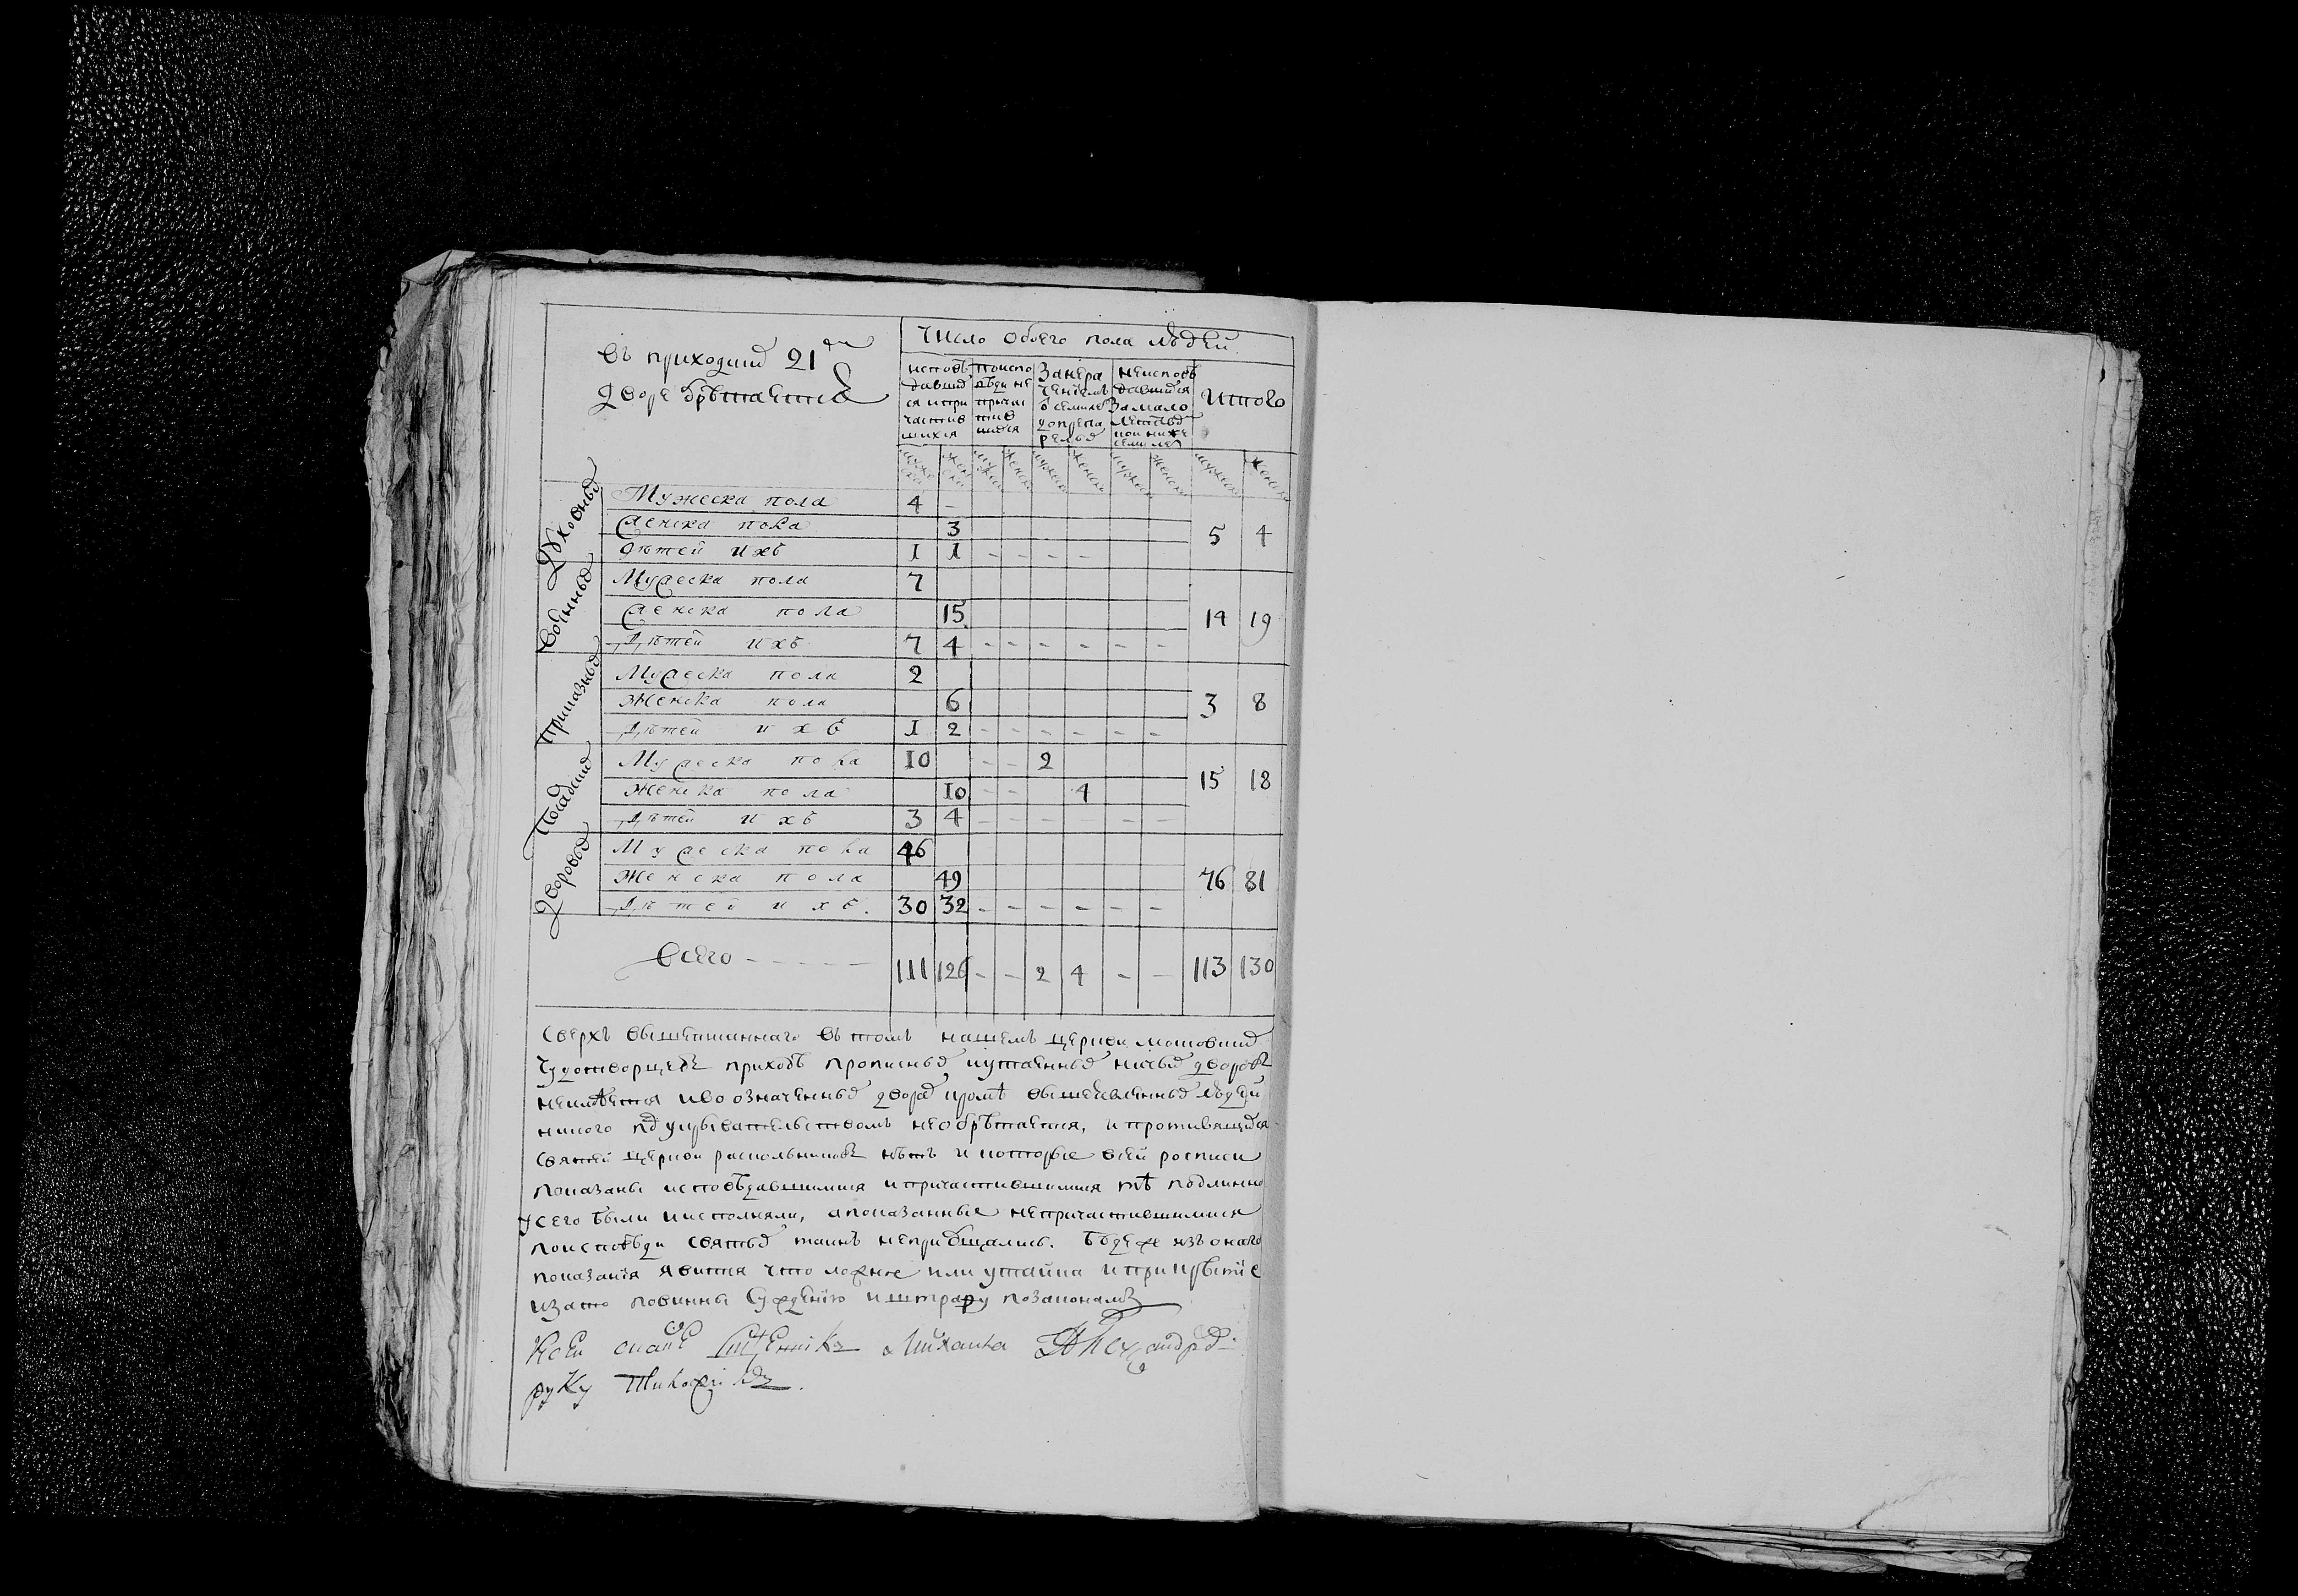 въ приходихъ 21мъ
дворе обрѣтается
Число обоего пола людей
исповѣдавшихся и причастившихся
по исповѣди не причастившихся
за нераченіемъ о семилѣ до преста релыхъ
неисповѣдавшихся за малолетствомъ пониже семи летъ
итого
мужеска женска мужеска женска мужеска женска мужеска женска мужеска женска
Духовныхъ
Мужеска пола 4 –
Женска пола 3 5 4
Дѣтей ихъ 1 1 – – – –
Воїнныхъ
Мужеска пола 7
Женска пола 15 14 19
Дѣтей ихъ 7 4 – – – – – –
Приказныхъ
Мужеска пола 2
Женска пола 6 3 8
Дѣтей ихъ 1 2 – – – – – –
Посадцкихъ
Мужеска пола 10 – – 2
Женска пола 10 – – 4 15 18
Дѣтей ихъ 3 4 – – – – – –
Дворовыхъ
Мужеска пола 46
Женска пола 49 76 81
Дѣтей ихъ 30 32 – – – – – –
Всего – – – – – 111 126 – – 2 4 – – 113 130
Сверхъ вышеписаннаго въ томъ нашемъ церкви московскихъ
Чудотворцевъ приходѣ прописныхъ и утаенныхъ ничьихъ дворовъ
неимѣется и во означенныхъ дворахъ кромѣ вышеявленныхъ людей
никого подъ укрывательствомъ необрѣтается, и противящихся
святей церкви раскольниковъ нѣтъ и которые всей росписи
показаны исповѣдавшимися и причастившимися тѣ подлинно
у сего были и исполняли, а показанные непричастившимися
по исповѣди святыхъ таинъ непріобщались. Буде же изъ онаго
показанія явится что ложное или утайка и прикрытіе
и за то повинны суждению и штрафу по законамъ
Ксей сказке священникъ Михаила Александровъ
руку приложилъ.